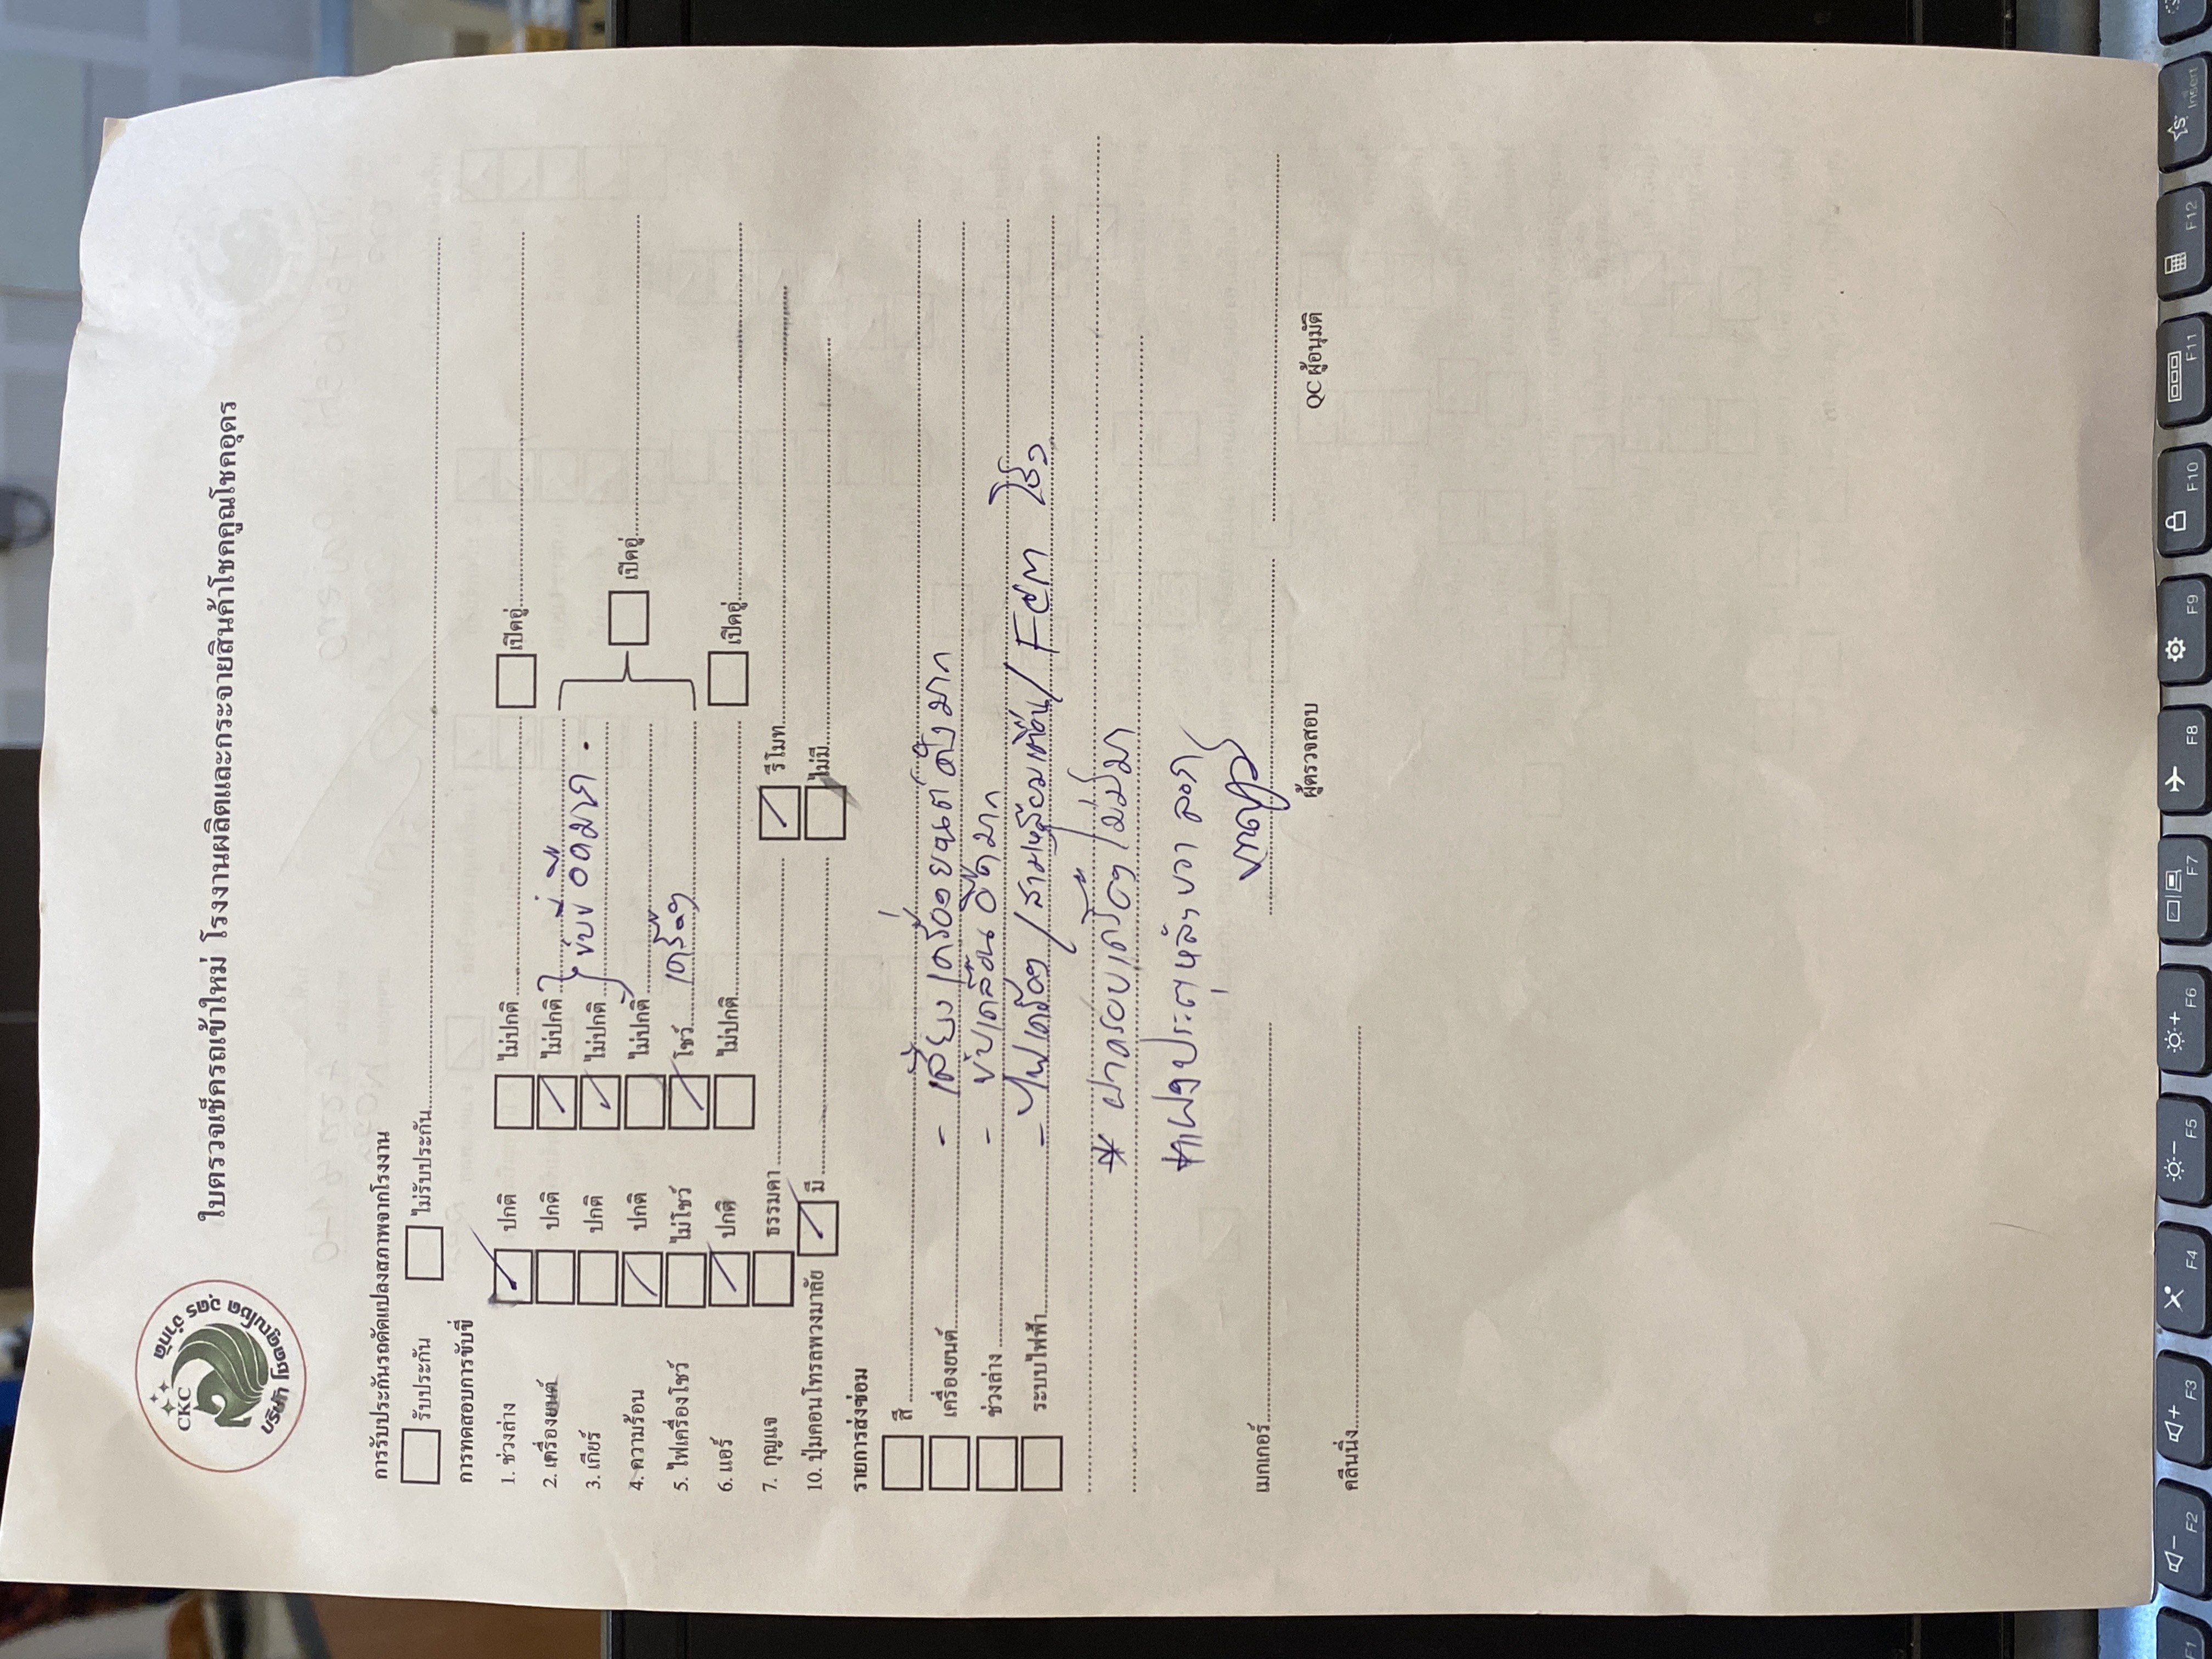 CKC
บริษัท โชคคูณโชค อุดร จำกัด
ใบตรวจเช็ครถเข้าใหม่ โรงงานผลิตและกระจายสินค้าโชคคูณโชคอุดร
การรับประกันรถดัดแปลงสภาพจากโรงงาน
รับประกัน ไม่รับประกัน
การทดสอบการขับขี่
1. ช่วงล่าง ปกติ ไม่ปกติ เปิดอู่
2. เครื่องยนต์ ปกติ ไม่ปกติ
ขับขี่ อืดมาก.
3. เกียร์ ปกติ ไม่ปกติ
เปิดอู่
4. ความร้อน ปกติ ไม่ปกติ
5. ไฟเครื่องโชว์ ไม่โชว์ โชว์ เครื่อง
6. แอร์ ปกติ ไม่ปกติ เปิดอู่
7. กุญแจ ธรรมดา รีโมท
10. ปุ่มคอนโทรลพวงมาลัย มี ไม่มี
รายการส่งซ่อม
สี
เครื่องยนต์ - เสียงเครื่องยนต์ดังมาก
ช่วงล่าง - ขับเคลื่อนอืดมาก
ระบบไฟฟ้า - ไฟเครื่อง / สามเหลี่ยมเตือน / FCM โชว์
* ฝาครอบเครื่อง ไม่มีมา
* แผงประตูหลังขวา ลอก
เมกเกอร์ ผู้ตรวจสอบ QC ผู้อนุมัติ
คลีนนิ่ง
F1
F2
F3
F4
F5
F6
F7
F8
F9
F10
F11
F12
Insert